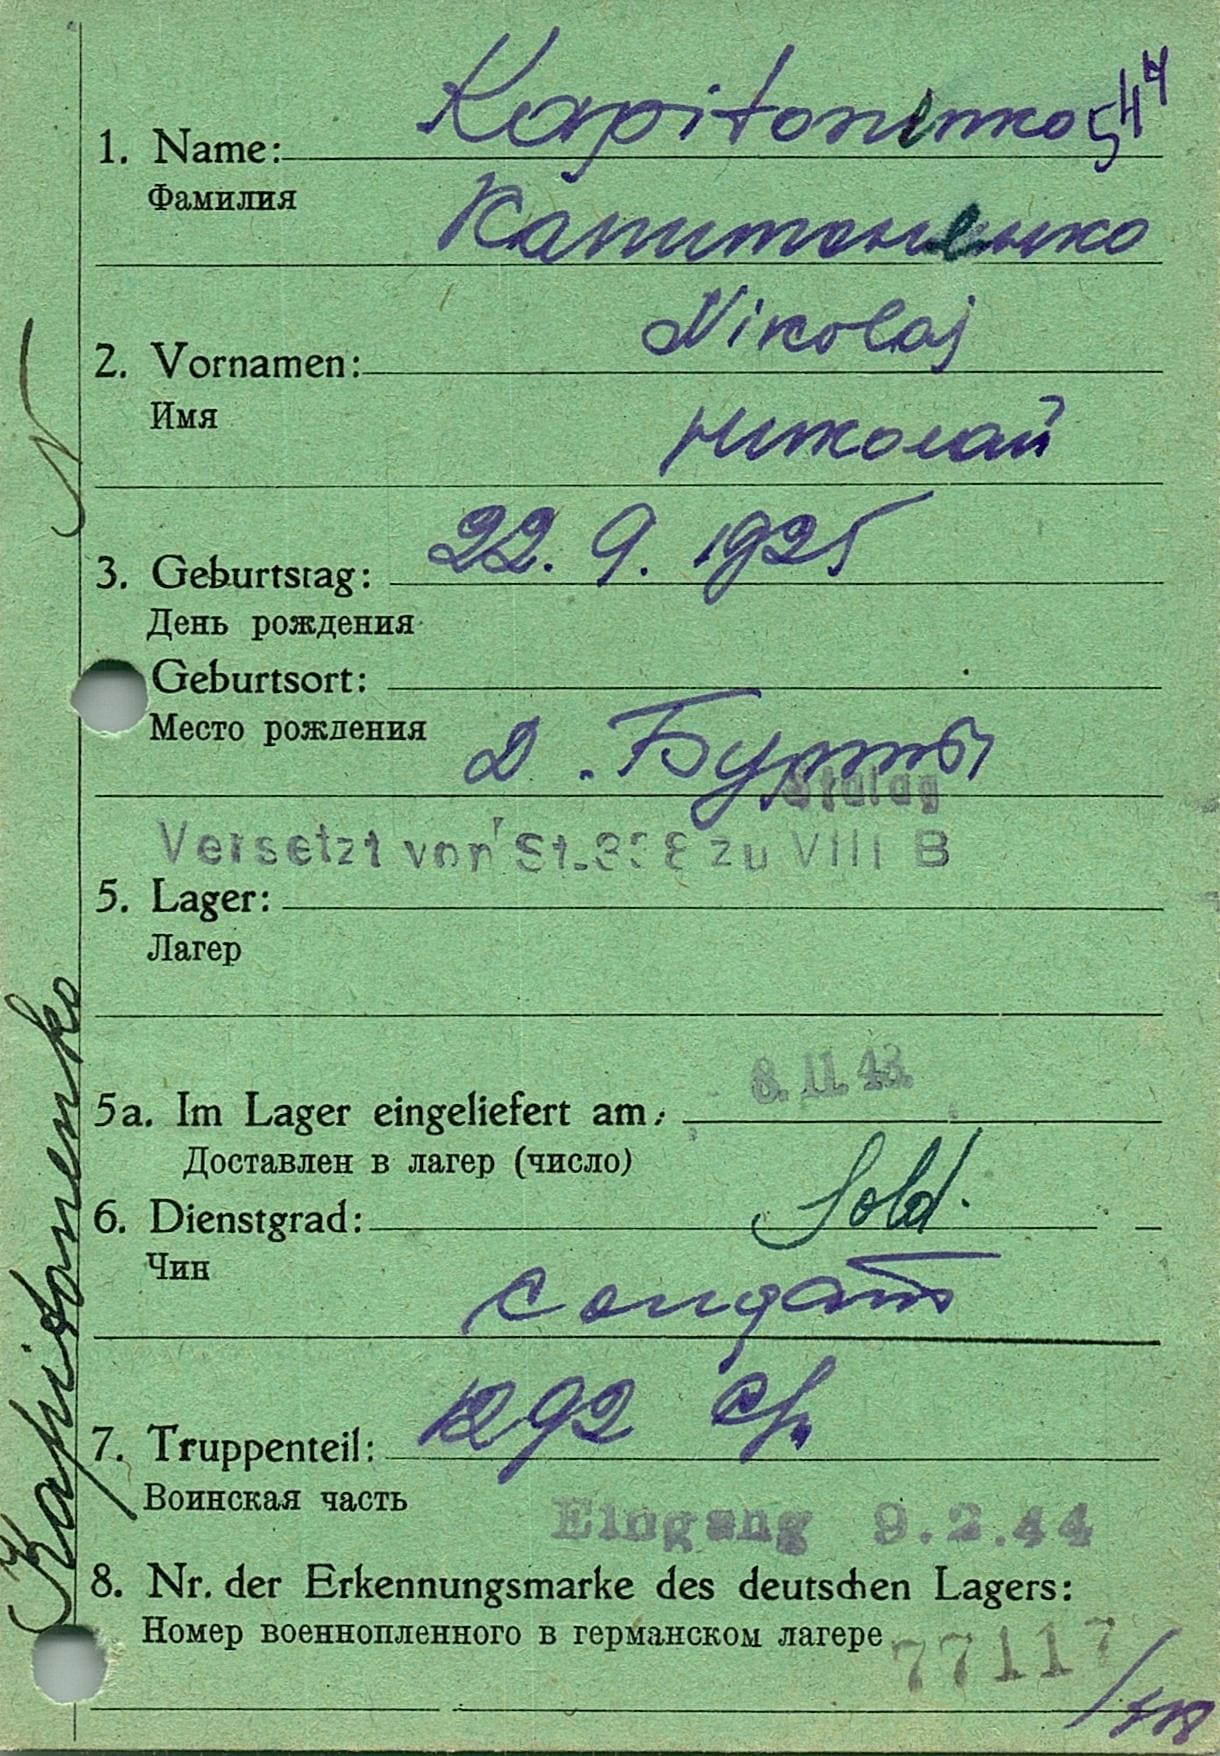 Kapitonenko 544
1. Name:
Фамилия
Капитоненко
Nikolaj
2. Vornamen:
Имя
Николай
22. 9. 1925
3. Geburtstag:
День рождения
Geburtsort:
Место рождения
Д. Бурты
Stalag
Versetzt von St. zu VIII B
5. Lager:
Лагер
8. 11. 43.
5a. Im Lager eingeliefert am:
Доставлен в лагер (число)
6. Dienstgrad: Sold.
Чин
Солдат
7. Truppenteil: 1292 сп
Воинская часть
Eingang 9.2.44
8. Nr. der Erkennungsmarke des deutschen Lagers:
Номер военнопленного в германском лагере
77117
Kapitonenko
N